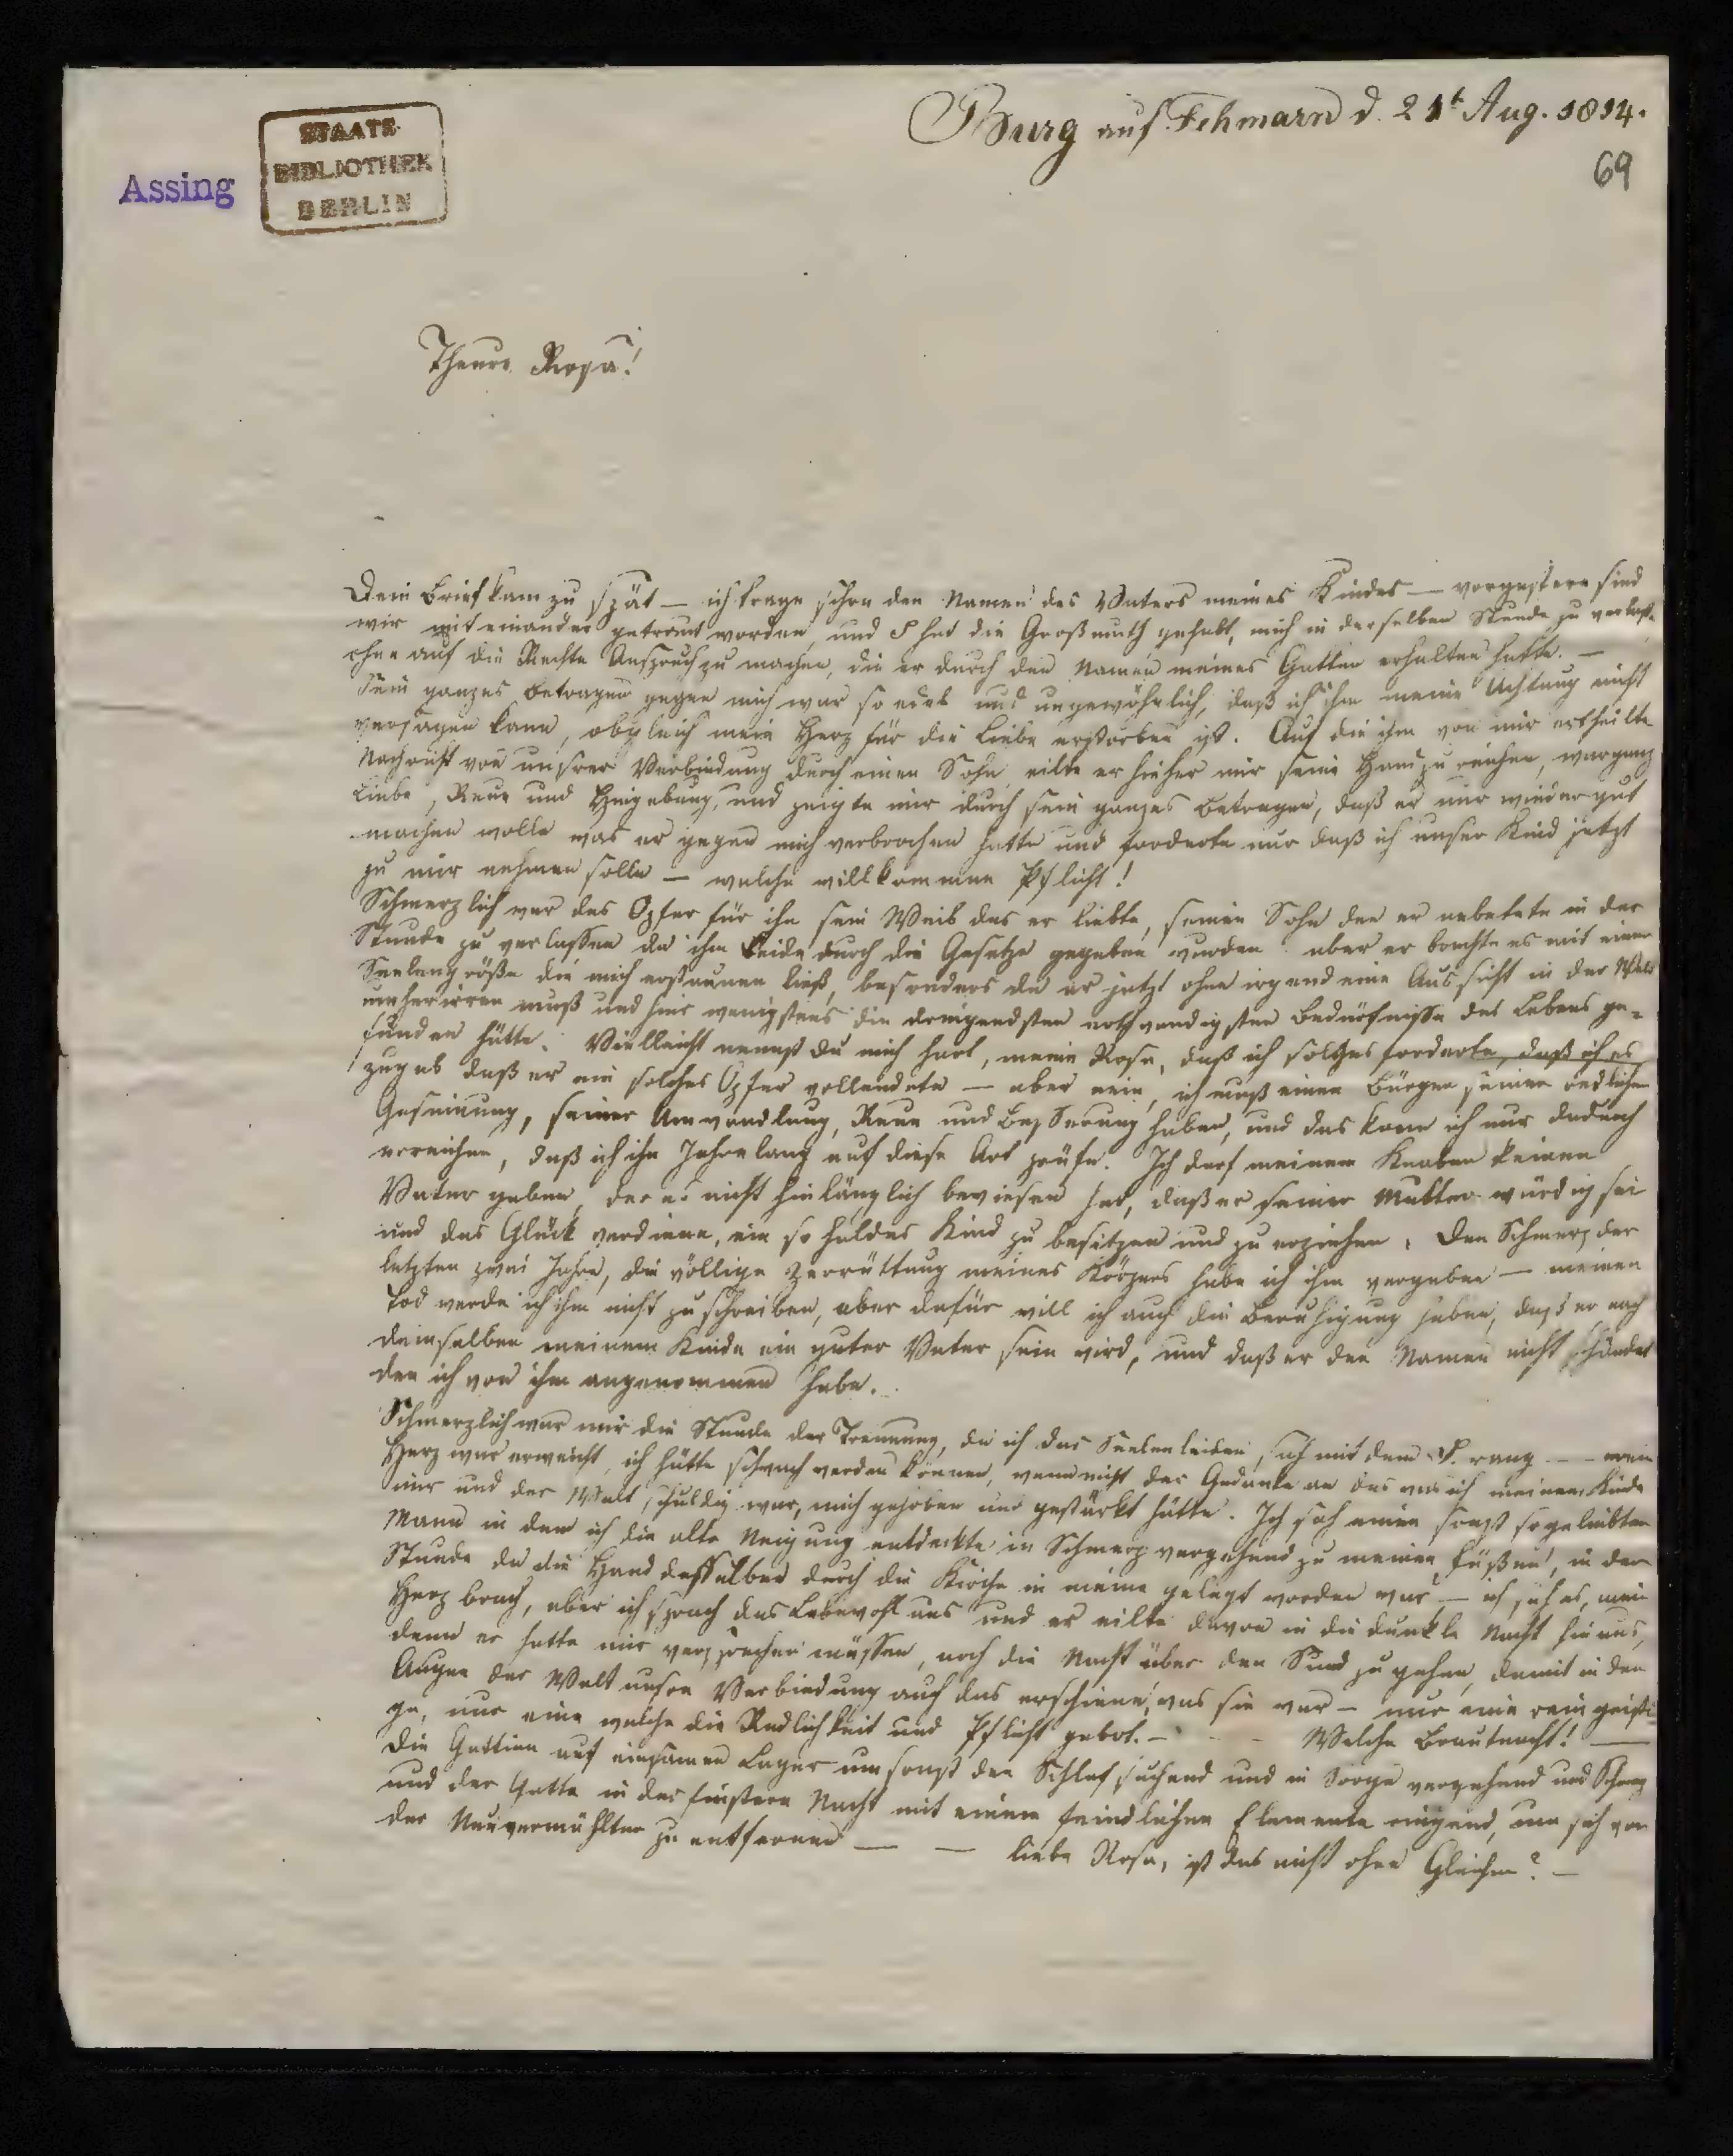 Burg auf Fehmarn d. 21t Aug. 1814.
69
Assing
STAATS-
BIBLIOTHEK
BERLIN
Theure Rosa!
Dein Brief kam zu spät — ich trage schon den Namen des Vaters meines Kindes — vorgestern sind
wir mit einander getraut worden, und S hat die Großmuth gehabt, mich in derselben Stunde zu verlassen
ohne auf die Rechte Anspruch zu machen, die er durch den Namen meines Gatten erhalten hatte. —
Sein ganzes Betragen gegen mich war so edel und ungewöhnlich, daß ich ihm meine Achtung nicht
versagen kann, obgleich mein Herz für die Liebe erstorben ist. Auf die ihm von mir ertheilte
Nachricht von unsrer Verbindung durch einen Sohn eilte er hieher mir seine Hand zu reichen, war ganz
Liebe, Reue und Hingebung, und zeigte mir durch sein ganzes Betragen, daß er nur wieder gut
machen wolle was er gegen mich verbrochen hatte und forderte nur daß ich unser Kind jetzt
zu mir nehmen solle — welche willkommne Pflicht!
Schmerzlich war das Opfer für ihn sein Weib das er liebte, seinen Sohn den er anbetete in der
Stunde zu verlassen da ihm beide durch die Gesetze gegeben wurden aber er brachte es mit einer
Seelengröße die mich erstaunen ließ, besonders da er jetzt ohne irgend eine Aussicht in der Welt
umherirren muß und hier wenigstens die dringendsten nothwendigsten Bedürfnisse des Lebens ge-
funden hätte. Vielleicht nennst du mich hart, meine Rosa, daß ich solches forderte, daß ich es
zugab daß er ein solches Opfer vollendete — aber nein, ich muß einen Bürgen seiner redlichen
Gesinnung, seiner Umwandlung, Reue und Besserung haben, und das kann ich nur dadurch
erreichen, daß ich ihn Jahrelang auf diese Art prüfe. Ich darf meinem Knaben keinen
Vater geben, der es nicht hinlänglich bewiesen hat, daß er seiner Mutter würdig sei
und das Glück verdiene, ein so holdes Kind zu besitzen und zu erziehen. Den Schmerz der
letzten zwei Jahre, die völlige Zerrüttung meines Körpers habe ich ihm vergeben — meinen
Tod werde ich ihm nicht zuschreiben, aber dafür will ich auch die Beruhigung haben, daß er nach
demselben meinem Kinde ein guter Vater sein wird, und daß er den Namen nicht schändet
den ich von ihm angenommen habe.
Schmerzlich war mir die Stunde der Trennung, da ich das Seelenleiden sah mit dem S. rang — — mein
Herz war erweicht, ich hätte schwach werden können, wenn nicht der Gedanke an das was ich meinem Kinde
mir und der Welt schuldig war, mich gehoben und gestärkt hätte. Ich sah einen sonst so geliebten
Mann in dem ich die alte Neigung entdeckte in Schmerz vergehend zu meinen Füßen, in der
Stunde da die Hand desselben durch die Kirche in meine gelegt worden war — ich sah es, mein
Herz brach, aber ich sprach das Lebewohl aus und er eilte davon in die dunkle Nacht hinaus,
denn er hatte mir versprechen müssen, noch die Nacht über den Sund zu gehen, damit in den
Augen der Welt unsre Verbindung auch das erschiene, was sie war — nur eine rein geisti-
ge, nur eine welche die Redlichkeit und Pflicht gebot. — — Welche Brautnacht! —
Die Gattinn auf einsamen Lager umsonst den Schlaf suchend und in Sorge vergehend und Schmerz
und der Gatte in der finstern Nacht mit einem feindlichen Elemente ringend, um sich von
der Neuvermählten zu entfernen — — liebe Rosa, ist das nicht ohne Gleichen? —